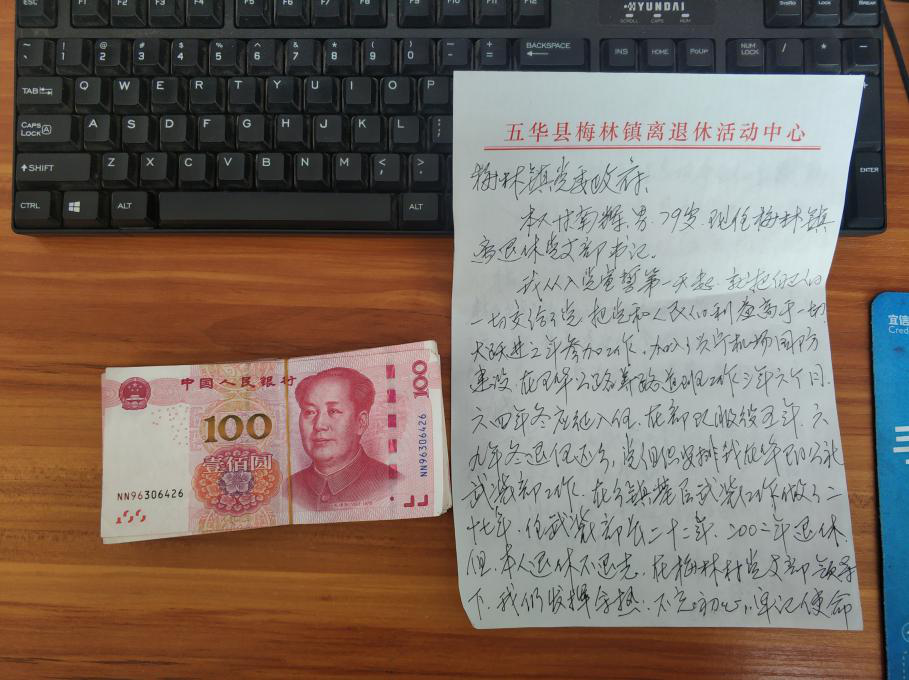 HYUNDAI
SCROLL CAPS NUM
ESC F1 F2 F3 F4 F5 F6 F7 F8 F9 F10 F11 F12 SysRq Lock Break
~ ! 1 @ 2 # 3 $ 4 % 5 ^ 6 & 7 * 8 ( 9 ) 0 - + = BACKSPACE INS HOME PoUP NUM LOCK / * -
TAB Q W E R T Y U I O P
CAPS LOCK A A S D F G H J K L ;
SHIFT Z X C V B N M < , > .
ENTER
CTRL ALT ALT
五华县梅林镇离退休活动中心
梅林镇党委政府:
本人甘南辉,男,79岁,现任梅林镇
离退休党支部书记。
我从入党宣誓第一天起,就把自己的
一切交给了党,把党和人民的利益高于一切,
大跃进之年参加工作,加入了兴宁机场国防
建设,在
公路
工作三年六个月,
六四年冬应征入伍,在部队服役五年,六
九年冬退伍
,党组织安排我在
公社
武装部工作,在
武装工作做了二
十七年,任武装部长二十二年,2002年退休
但本人退休不退志,在梅林村党支部领导
下,我们发挥余热,不忘初心,牢记使命
中国人民银行
100
100
壹佰圆
NN96306426
NN96306426
宜信
Cred